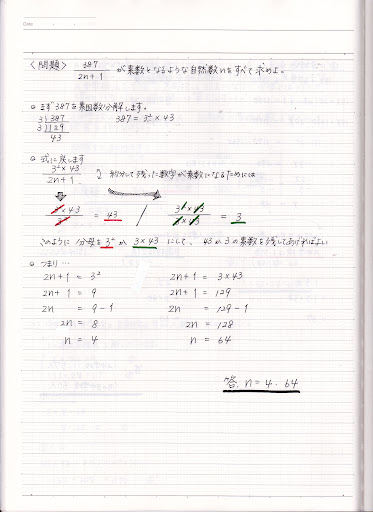 Date
〈問題〉 387/2n+1 が素数となるような自然数nをすべて求めよ。
◎ まず387を素因数分解します。
3)387 387 = 3² × 43
3)129
43
◎ 式に戻します
3² × 43 / 2n+1 約分して残った数字が素数になるためには
3² × 43 / 3² = 43 / 3² × 43 / 3 × 43 = 3
このように分母を 3² か 3 × 43 にして、43か3の素数を残してあげればよい
◎ つまり…
2n+1 = 3² 2n+1 = 3 × 43
2n+1 = 9 2n+1 = 129
2n = 9 - 1 2n = 129 - 1
2n = 8 2n = 128
n = 4 n = 64
答. n = 4 . 64